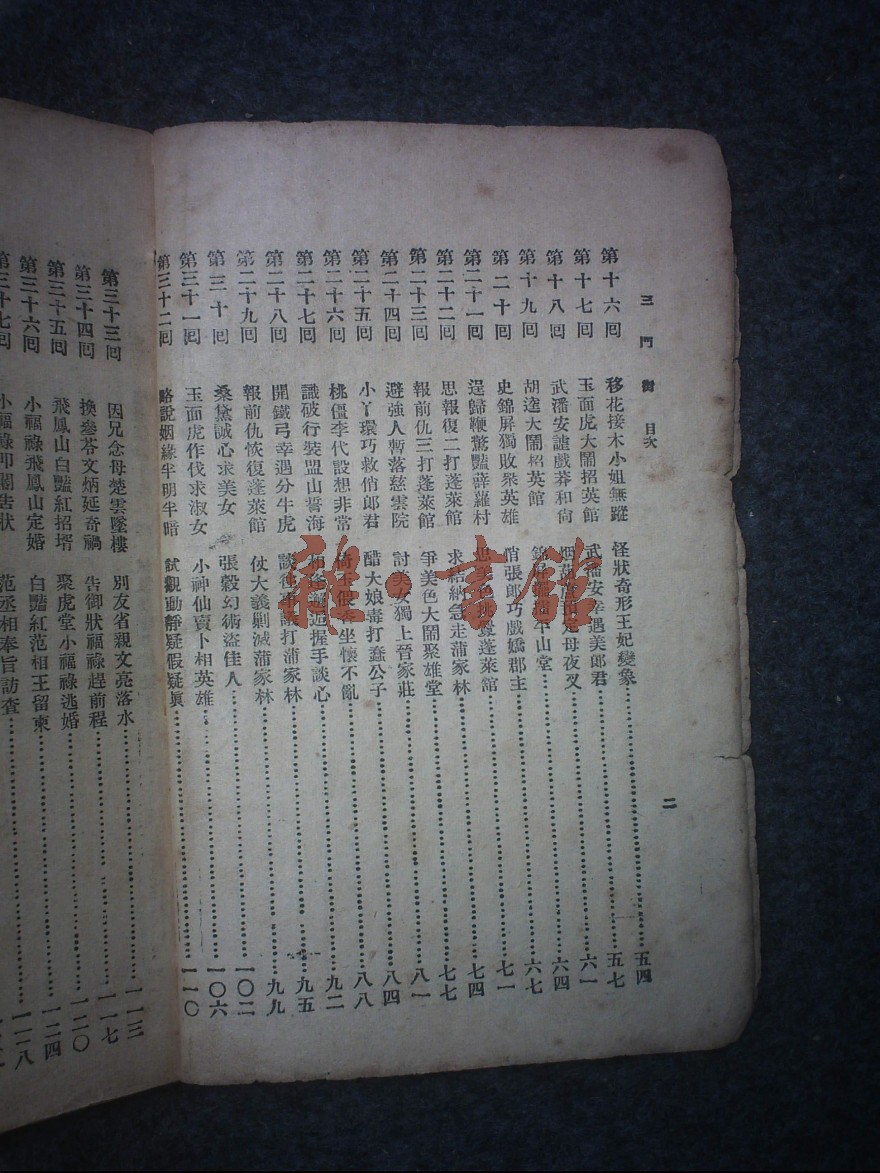 三門街 目次
二
第十六囘 移花接木小姐無蹤 怪狀奇形王妃變象 五四
第十七囘 玉面虎大鬧招英館 武潘安幸遇美郎君 五七
第十八囘 武潘安謔戲莽和尙 母夜叉 六一
第十九囘 胡逵大鬧招英館 山堂 六四
第二十囘 史錦屏獨敗衆英雄 俏張郎巧戲嬌郡主 六七
第二十一囘 逞歸鞭驚豔薜蘿村 思美色 蓬萊舘 七一
第二十二囘 思報復二打蓬萊館 求結納急走蒲家林 七四
第二十三囘 報前仇三打蓬萊館 爭美色大鬧聚雄堂 七七
第二十四囘 避強人暫落慈雲院 討美女獨上晉家莊 八一
第二十五囘 小丫環巧救俏郎君 醋大娘毒打蠢公子 八四
第二十六囘 桃僵李代設想非常 倚玉偎香坐懷不亂 八八
第二十七囘 識破行裝盟山誓海 相逢邂逅握手談心 九二
第二十八囘 開鐵弓幸遇分牛虎 談往事議打蒲家林 九五
第二十九囘 報前仇恢復蓬萊館 仗大義剿滅蒲家林 九九
第三十囘 桑黛誠心求美女 張穀幻術盜佳人 一〇二
第三十一囘 玉面虎作伐求淑女 小神仙賣卜相英雄 一〇六
第三十二囘 略說姻緣半明半暗 試觀動靜疑假疑眞 一一〇
第三十三囘 因兄念母楚雲墜樓 別友省親文亮落水 一一三
第三十四囘 換參苓文炳延奇禍 告御狀福祿趕前程 一一七
第三十五囘 飛鳳山白豔紅招壻 聚虎堂小福祿逃婚 一二〇
第三十六囘 小福祿飛鳳山定婚 白豔紅范相王留柬 一二四
第三十七囘 小福祿叩閽告狀 范丞相奉旨訪查 一二八
雜·書館